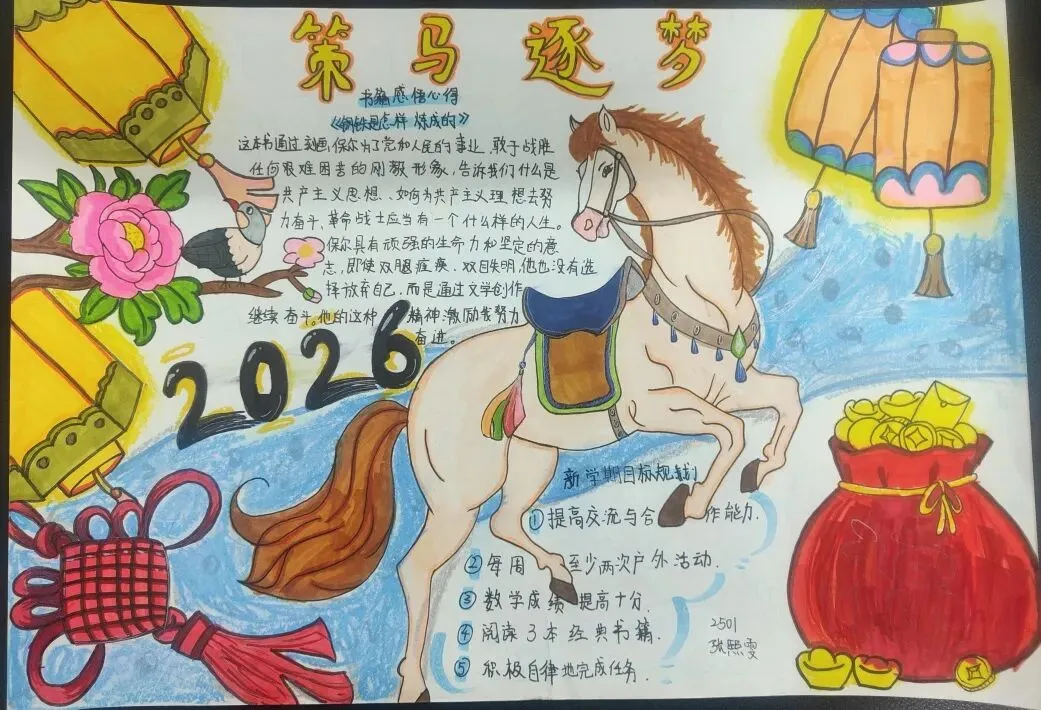 策马逐梦
书籍感悟心得
《钢铁是怎样炼成的》
这本书通过刻画保尔为了党和人民的事业,敢于战胜
任何艰难困苦的刚毅形象,告诉我们什么是
共产主义思想、如何为共产主义理想去努
力奋斗、革命战士应当有一个什么样的人生。
保尔具有顽强的生命力和坚定的意
志,即使双腿瘫痪、双目失明,他也没有选
择放弃自己,而是通过文学创作
继续奋斗。他的这种精神激励我努力
奋进。
2026
新学期目标规划
①提高交流与合作能力.
②每周至少两次户外活动.
③数学成绩提高十分.
④阅读3本经典书籍.
⑤积极自律地完成任务.
2501
张熙雯